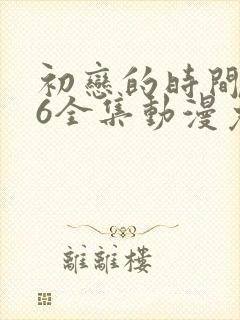 初戀的時間
6全集動漫
離離樓